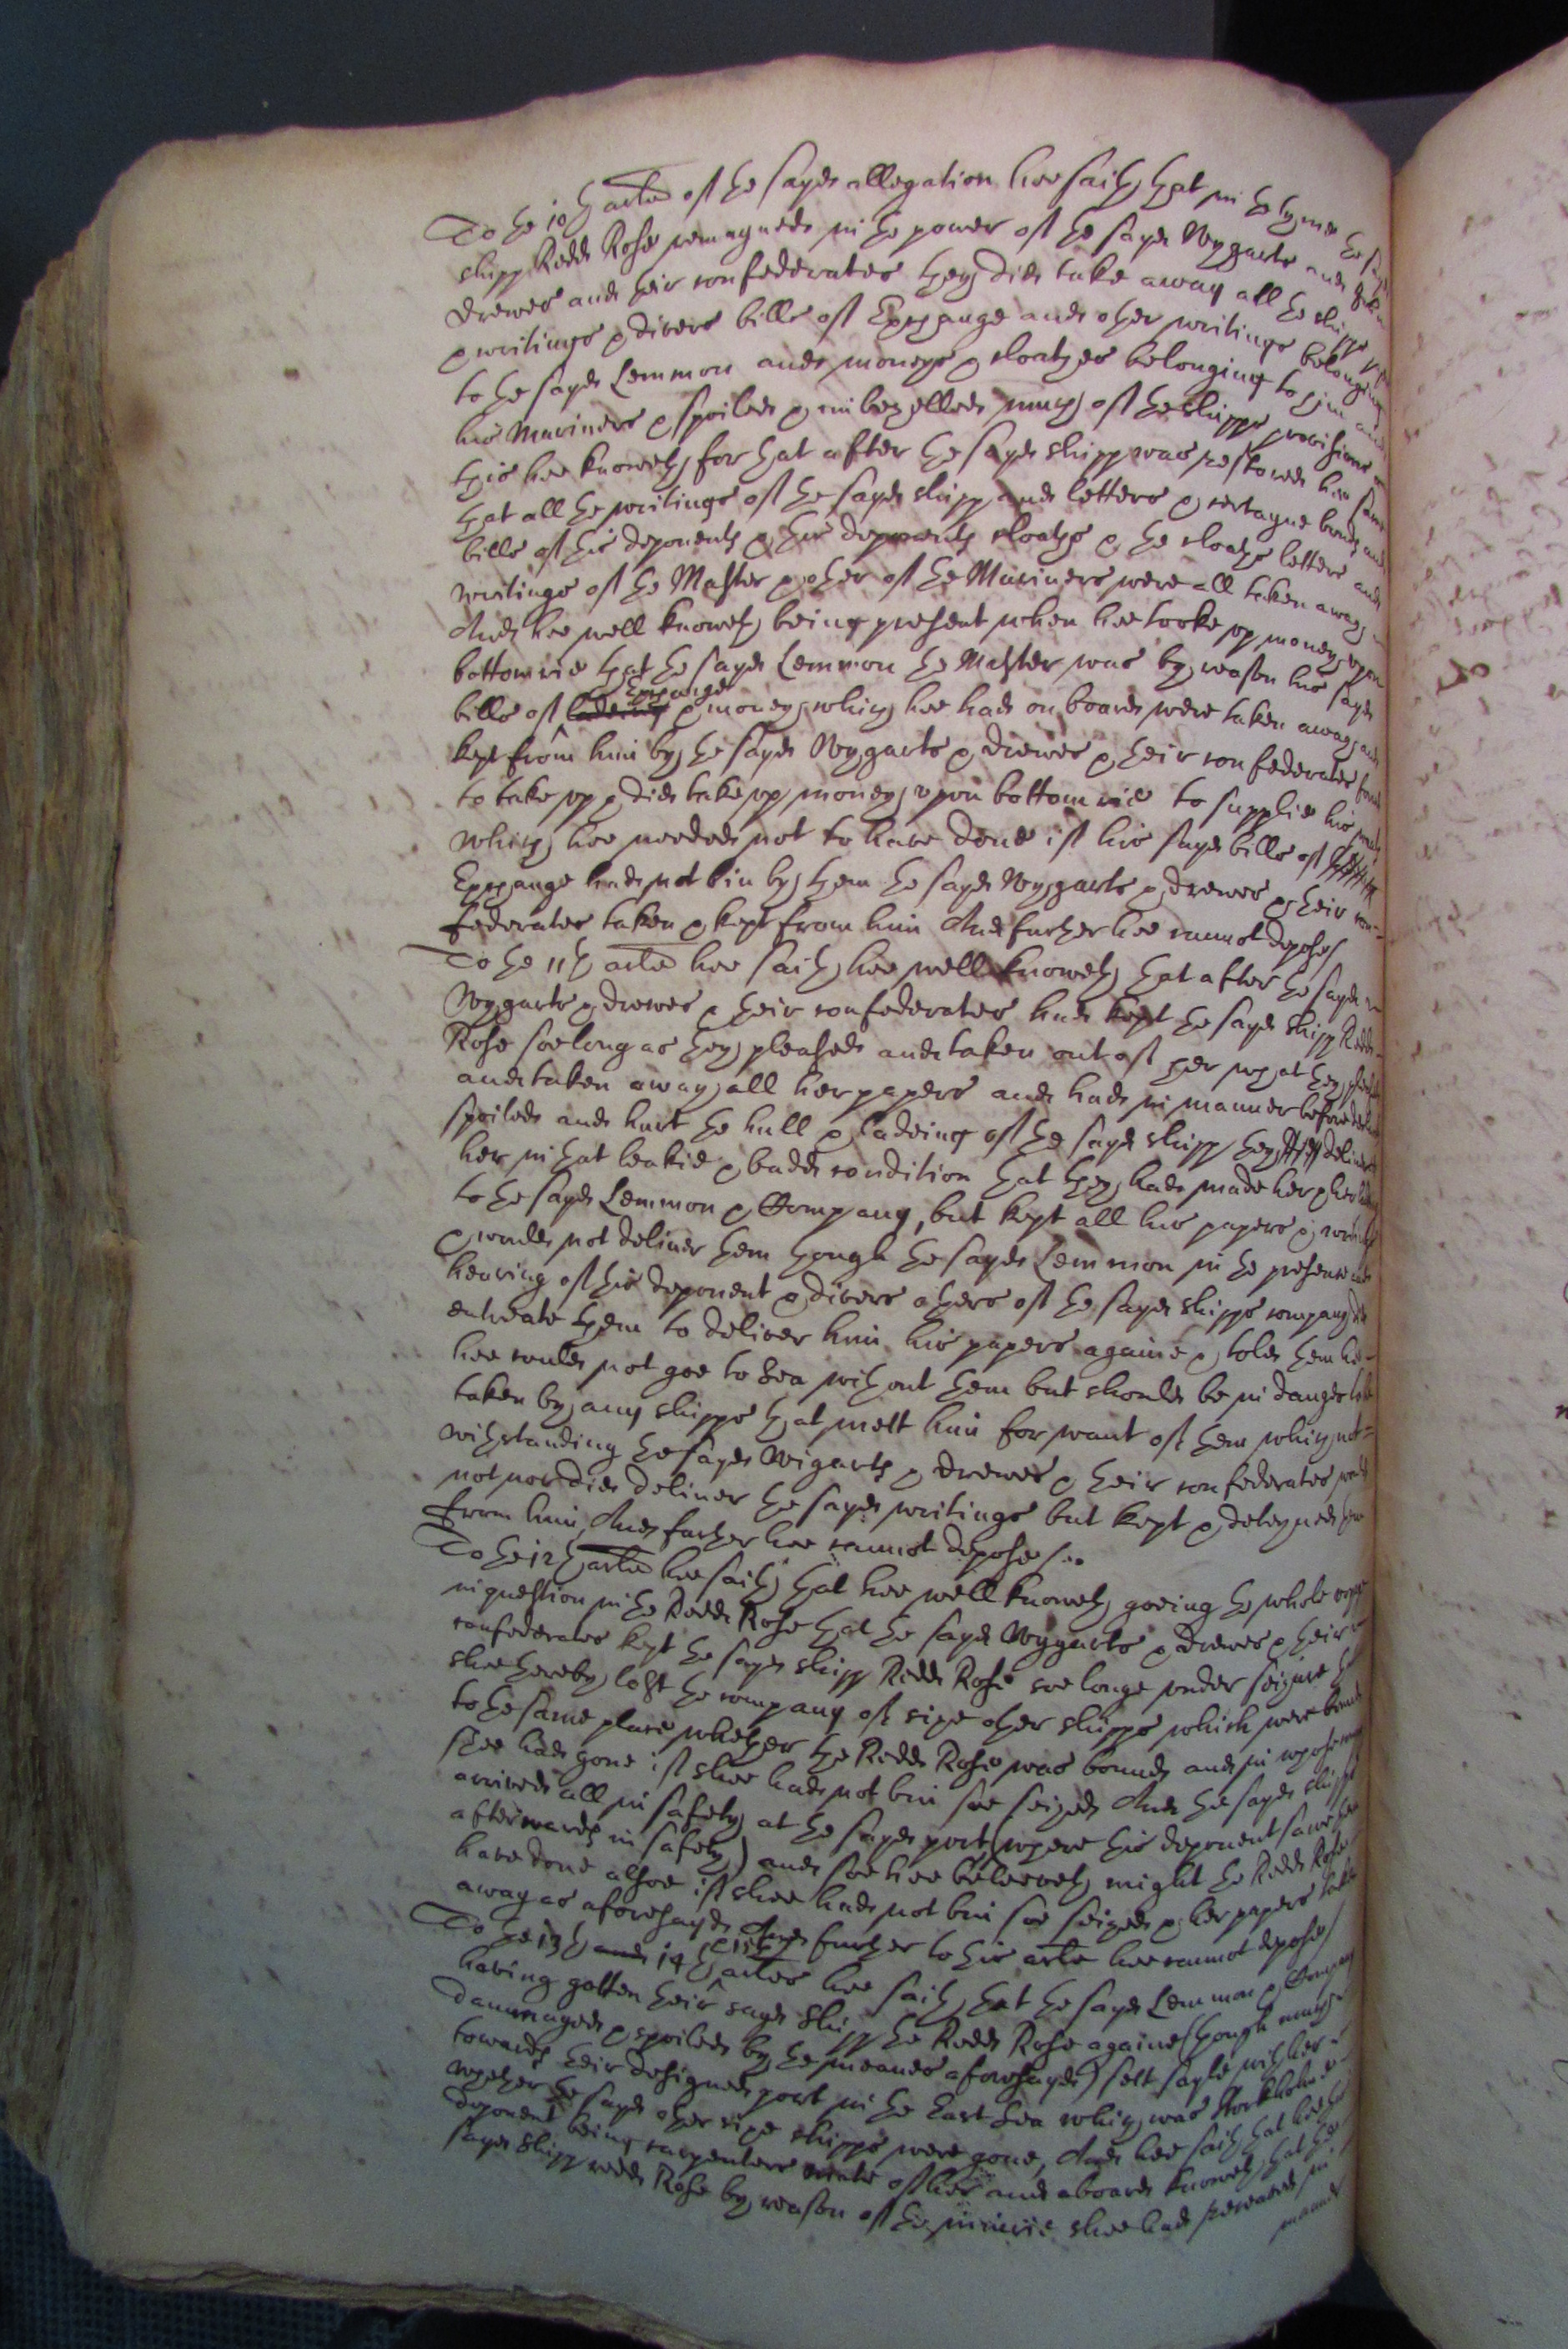 To the 10th article of the sayd allegation hee saith that in the tyme the sayd
shipp Redd Rose remayned in the power of the sayd Wygarts and
Drewes and their confederates they did take away all the shipps
& writings & divers bills of Exchange and other writings belonging
to the sayd Lemmon and moneys & cloathes belonging to him and
his Mariners & spoiled & imbezelled much of the shipps provisions
this hee knoweth for that after the sayd shipp was restored hee sawe
that all the writings of the sayd shipp and letters & certayne bonds and
bills of this deponents & this deponents cloaths & the cloaths letters and
writings of the Master & other of the Mariners were all taken away
And hee well knoweth being present when hee tooke up money upon
bottomrie that the sayd Lemmon the Master was by reason his sayd
bills of Exchange & money which hee had on board were taken away and
kept from him by the sayd Wygarts & Drewes & their confederates
to take up & did take up money upon bottomrie to supplie his
which hee needed not to have done if his sayd bills of
Exchange had not bin by them the sayd Wygarts & Drewes & their con-
federates taken & kept from him And further hee cannot depose/
To the 11th article hee saith hee well knoweth that after the sayd
Wygarts & Drewes & their confederates had kept the sayd shipp Redd
Rose soe long as they pleased and taken out of her what they pleased
and taken away all her papers and had in manner before
spoiled and hurt the hull & ladeing of the sayd shipp they delivered
her in that leakie & badd condition that they had made her & her
to the sayd Lemmon & Company, but kept all his papers &
& would not deliver them though the sayd Lemmon in the presence and
hearing of this deponent & divers others of the sayd shipps company did
entreate them to deliver him his papers againe & told them hee
hee could not goe to Sea without them but should be in danger to be
taken by any shipps that mett him for want of them which not=
withstanding the sayd Wigarts & Drewes & their confederates would
not nor did deliver the sayd writings but kept & deteyned them
from him, And further hee cannot depose/.
To the 12th article hee saith that hee well knoweth goeing the whole voyage
in question in the Redd Rose that the sayd Wygarts & Drewes & their
confederates kept the sayd shipp Redd Rose soe longe under seizure that
shee thereby lost the company of sixe other shipps which were bound
to the same place whether the Redd Rose was bound, and in whose company
shee had gone if shee had not bin soe seized And the sayd shipps
arrived all in safety at the sayd port (where this deponent sawe them
afterwards in safety) and soe hee beleeveth might the Redd Rose
have done alsoe if shee had not bin soe seized & her papers taken
away as aforesayd And further to this article hee cannot depose/
To the 13th 14th & 15th articles hee saith that the sayd Lemmon & Company
having gotten their sayd Shipp the Redd Rose againe (though much
dammaged & spoiled by the meanes aforesayd) sett sayle with her
towards their designed port in the East Sea which was Stockholme
whether the sayd other sixe shipps were gone, And hee saith that hee this
deponent being carpenters mate of her and aboard knoweth that the
sayd shipp redd Rose by reason of the injurie shee had receaved in
manner